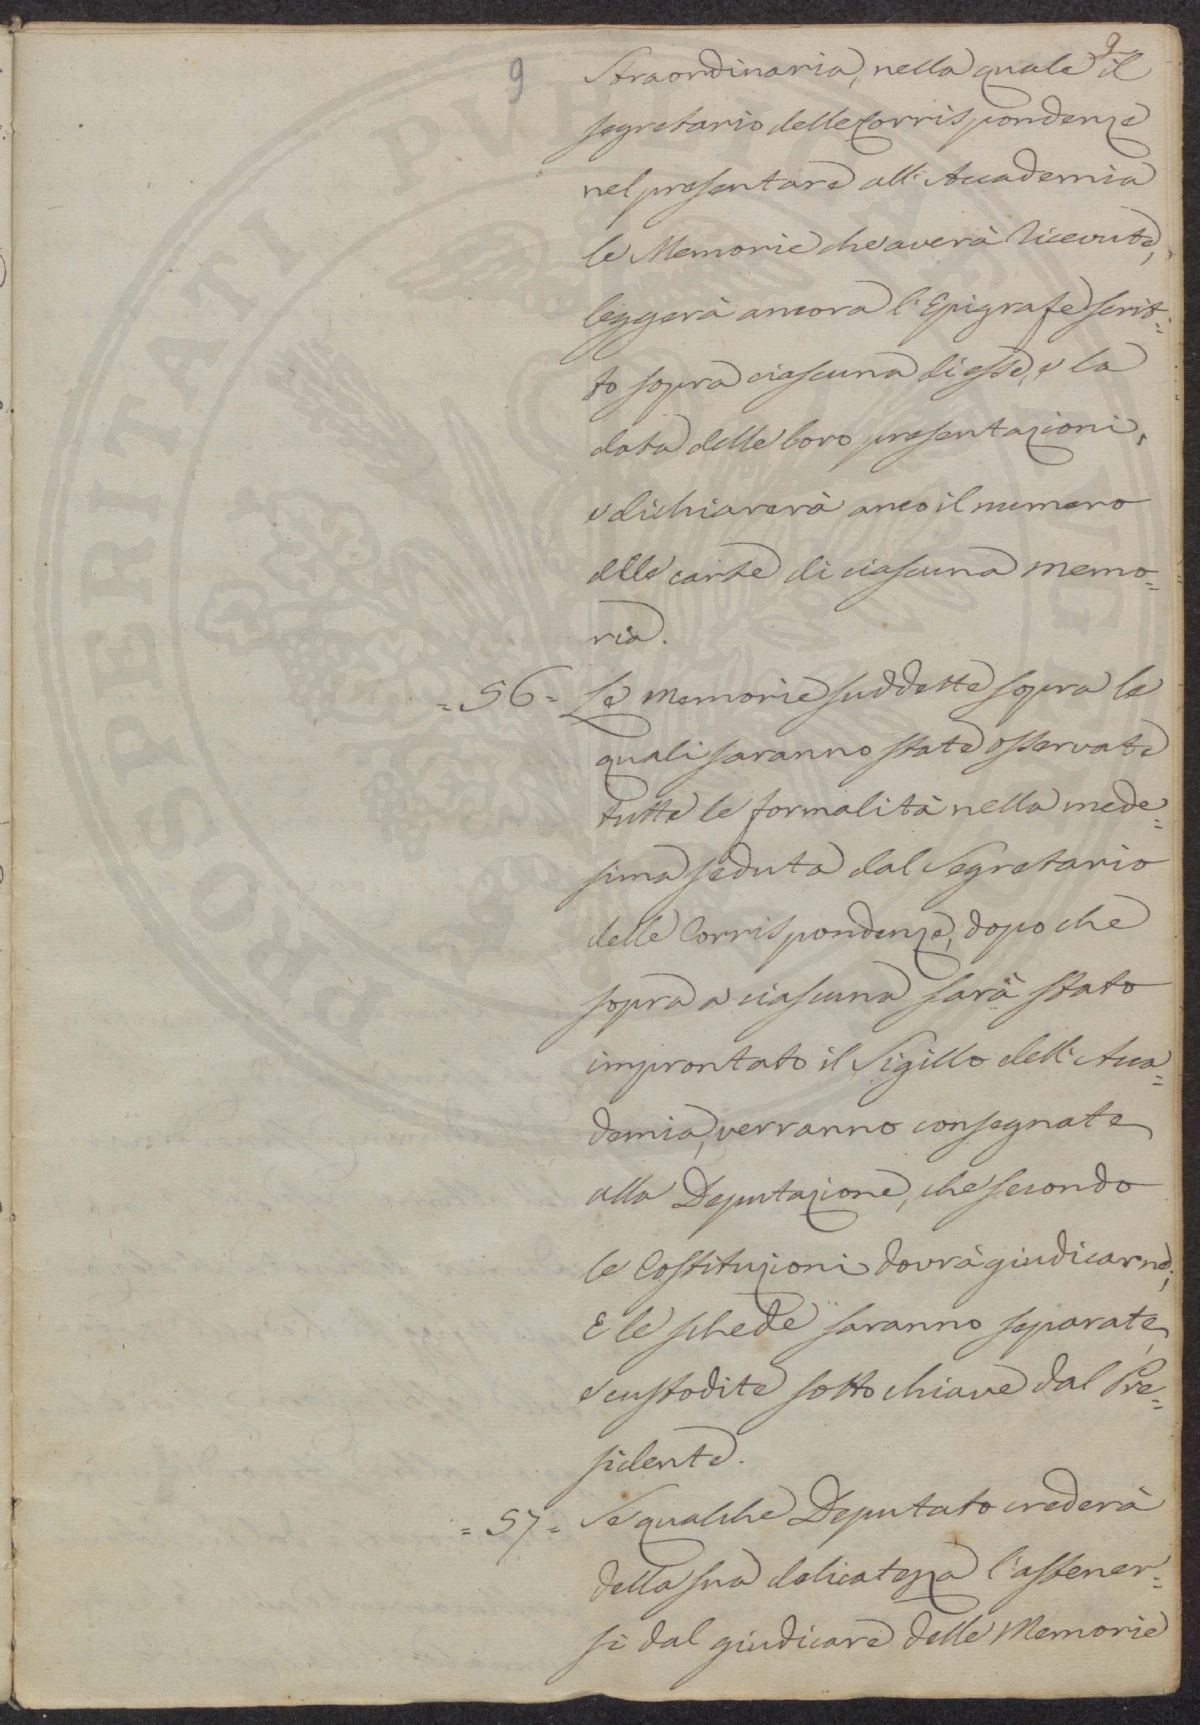 9
9
Straordinaria, nella quale il
segretario delle Corrispondenze
nel presentare all'Accademia
le Memorie che averà ricevute,
leggerà ancora l'Epigrafe scrit=
to sopra ciascuna di esse, e la
data delle loro presentazioni,
e dichiarerà anco il numero
delle carte di ciascuna memo=
ria.
=56= Le memorie suddette sopra le
quali saranno state osservate
tutte le formalità nella mede=
sima seduta dal Segretario
delle Corrispondenze, dopo che
sopra a ciascuna sarà stato
improntato il Sigillo dell'Acca=
demia, verranno consegnate
alla Deputazione, che secondo
le Costituzioni dovrà giudicarne;
E le schede saranno separate,
e custodite sotto chiave dal Pre=
sidente.
=57= Se qualche Deputato crederà
della sua delicatezza l'astener=
si dal giudicare delle Memorie
PROSPERITATI PVBLICAE